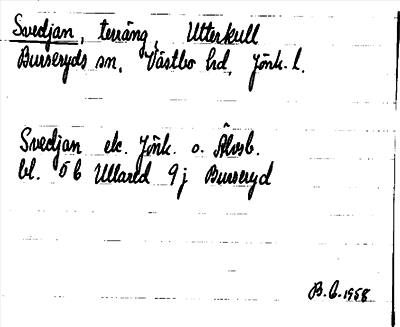 Svedjan, terräng, Utterkull
Burseryds sn, Västbo hd, Jönk. l.
Svedjan ek. Jönk. o. Älvsb.
bl. 5 C Ullared 9 j Burseryd
B. C. 1958